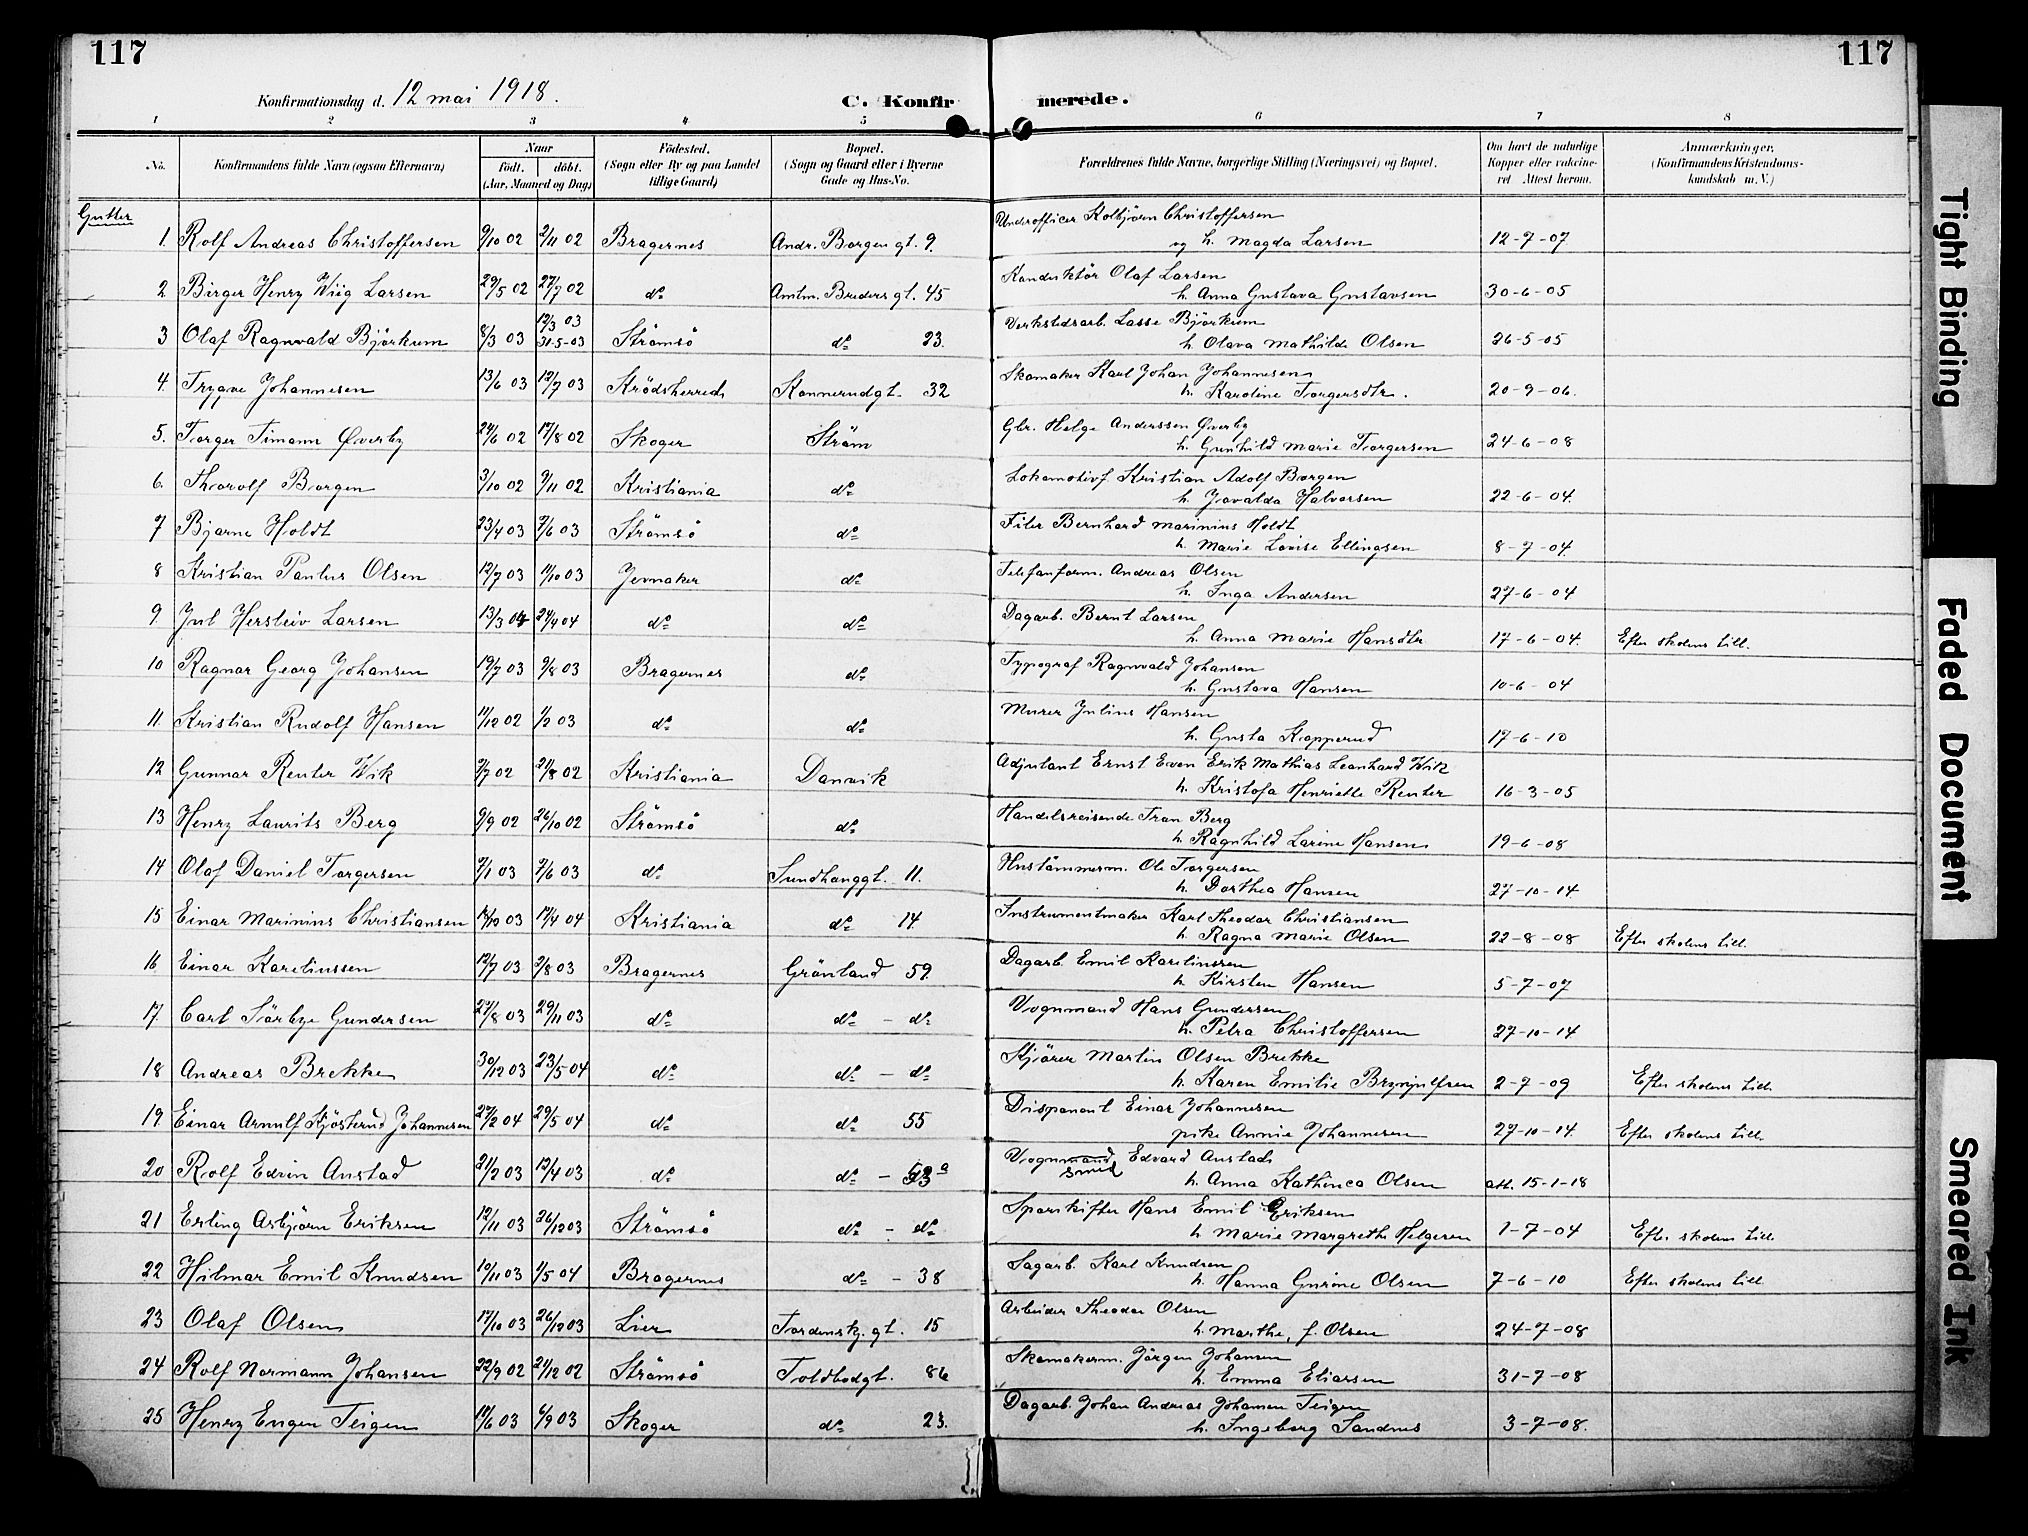 117
117
Konfirmationsdag d. 12 mai 1918.
C. Konfir merede.
1 2 3 4 5 6 7 8
No. Konfirmandens fulde Navn (ogsaa Efternavn) Naar født. døbt. (Aar, Maaned og Dag) Fødested. (Sogn eller By og paa Landet tillige Gaard) Bopæl. (Sogn og Gaard eller i Byerne Gade og Hus-No. Forældrenes fulde Navne, borgerlige Stilling (Næringsvei) og Bopæl. Om havt de naturlige Kopper eller vakcineret Attest herom. Anmerkninger. (Konfirmandens Kristendomskundskab m. V.)
Gutter
1. Rolf Andreas Christoffersen 9/10 02 2/11 02 Bragernes Andr. Borgen gt. 9. Underofficer Kolbjørn Christoffersen
og h. Magda Larsen 12-7-07
2 Birger Henry Wiig Larsen 29/5 02 27/7 02 do Amtm. Breders gt. 45 Konduktør Olaf Larsen
h. Anna Gustava Gustavsen 30-6-05
3 Olaf Ragnvald Björkum 8/3 03 12/3 03 31-5-03 Strömsö do 23 Verkstedsarb. Lasse Björkum
h. Olava Mathilde Olsen 26-5-05
4. Trygve Johannesen 13/6 03 12/7 03 Krödsherred Konnerudgt. 32 Skomaker Karl Johan Johannesen
h. Karoline Torgersdtr. 20-9-06.
5. Torger Timann Øverby 24/6 02 17/8 02 Skoger Ström Gbr. Helge Anderssen Øverby
h. Gunhild Marie Torgersen 24-6-08
6. Thorolf Borgen 3/10 02 9/11 02 Kristiania do Lokomotivf. Kristian Adolf Borgen
h. Jovalda Halvorsen 22-6-04
7 Bjarne Holdt 23/4 03 7/6 03 Strömsö do Filer Bernhard Marinius Holdt
h. Marie Lovise Ellingsen 8-7-04.
8 Kristian Paulus Olsen 12/7 03 11/10 03 Jevnaker do Telefonform. Andreas Olsen
h. Inga Andersen 27-6-04
9 Jul Hersleiv Larsen 13/3 04 24/4 04 do do Dagarb. Bernt Larsen
h. Anna Marie Hansdtr 17-6-04. Efter skolens till.
10 Ragnar Georg Johansen 19/7 03 9/8 03 Bragernes do Typograf Ragnvald Johansen
h. Gustava Hansen 10-6-04
11 Kristian Rudolf Hansen 11/12 02 1/2 03 do do Murer Julius Hansen
h. Gusta Kopperud 17-6-10
12 Gunnar Reuter Wik 7/7 02 21/8 02 Kristiania Danvik Adjutant Ernst Even Erik Mathias Leonhard Wik
h. Kristofa Henriette Reuter 16-3-05
13 Henry Laurits Berg 9/9 02 26/10 02 Strömsö do Handelsreisende Tron Berg
h. Ragnhild Larine Hansen 19-6-08
14 Olaf Daniel Torgersen 7/1 03 7/6 03 do Sundhauggt. 11. Hustömmerm. Ole Torgersen
h. Dorthea Hansen 27-10-14.
15 Einar Marinius Christiansen 14/10 03 17/4 04 Kristiania do 14. Instrumentmaker Karl Theodor Christiansen
h. Ragna Marie Olsen 22-8-08 Efter skolens till.
16 Einar Karelinssen 12/7 03 2/8 03 Bragernes Grönland 59. Dagarb. Emil Karelinssen
h. Kirsten Hansen 5-7-07
17. Carl Sörbye Gundersen 27/8 03 29/11 03 do do - do Vognmand Hans Gundersen
h. Petra Christoffersen 27-10-14
18 Andreas Brekke 30/12 03 23/5 04 do do - do Kjörer Martin Olsen Brekke
h. Karen Emilie Brynjulfsen 2-7-09 Efter skolens till.
19 Einar Arnulf Kjösterud Johannesen 27/2 04 29/5 04 do do 55 Disponent Einar Johannesen
pike Annie Johannesen 27-10-14. Efter skolens till.
20 Rolf Edvin Anstad 21/2 03 12/4 03 do do - 53a Vognmand smed Edvard Anstad
h. Anna Kathinca Olsen att. 15-1-18
21 Erling Asbjørn Eriksen 12/11 03 26/12 03 Strömsö do - do Sporskifter Hans Emil Eriksen
h. Marie Margrethe Helgesen 1-7-04 Efter skolens till.
22 Hilmar Emil Knudsen 10/11 03 1/5 04 Bragernes do - 38 Sagarb. Karl Knudsen
h. Hanna Gurine Olsen 7-6-10 Efter skolens till.
23 Olaf Olsen 17/10 03 26/12 03 Lier Tordensk. gt. 15 Arbeider Theodor Olsen
h. Marthe, f. Olsen 24-7-08
24 Rolf Normann Johansen 22/9 02 21/12 02 Strömsö Toldbodgt. 86 Skomakerm. Jörgen Johansen
h. Emma Eliassen 31-7-08
25 Henry Eugen Teigen 18/6 03 6/9 03 Skoger do 23. Dagarb. Johan Andreas Johansen Teigen
h. Ingeborg Sandnes 3-7-08.
Tight Binding
Faded Document
Smeared Ink